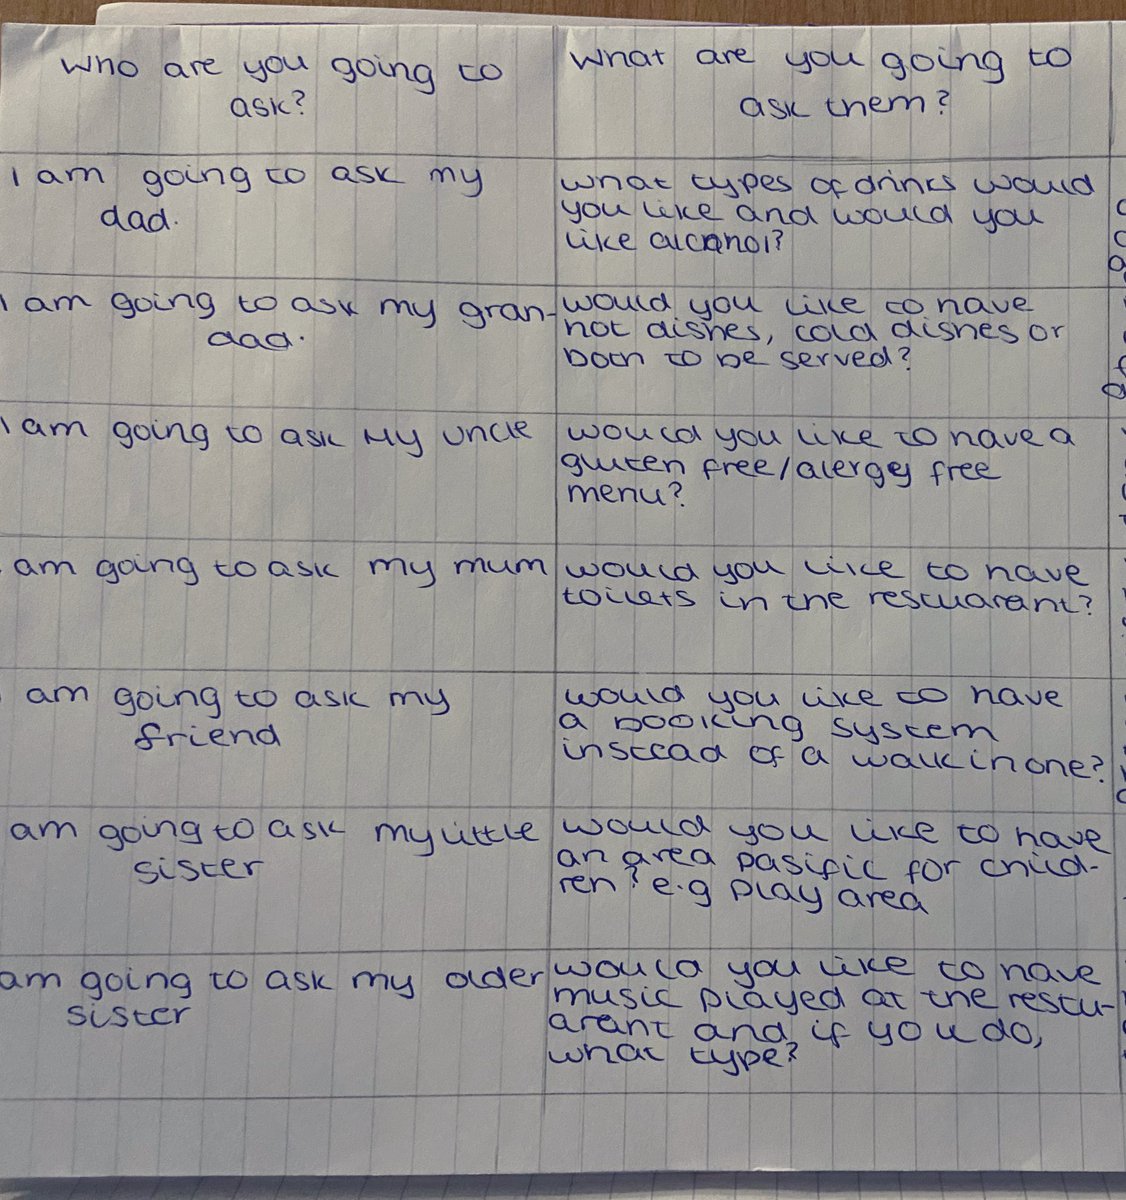 Who are you going to
ask?
What are you going to
ask them?
I am going to ask my
dad.
what types of drinks would
you like and would you
like alcohol?
I am going to ask my gran-
dad.
would you like to have
hot dishes, cold dishes or
both to be served?
I am going to ask my uncle
would you like to have a
gluten free/alergey free
menu?
am going to ask my mum
would you like to have
toilets in the restuarant?
am going to ask my
friend
would you like to have
a booking system
instead of a walk in one?
am going to ask my little
sister
would you like to have
an area pasific for child-
ren? e.g play area
am going to ask my older
sister
would you like to have
music played at the restu-
arant and, if you do,
what type?